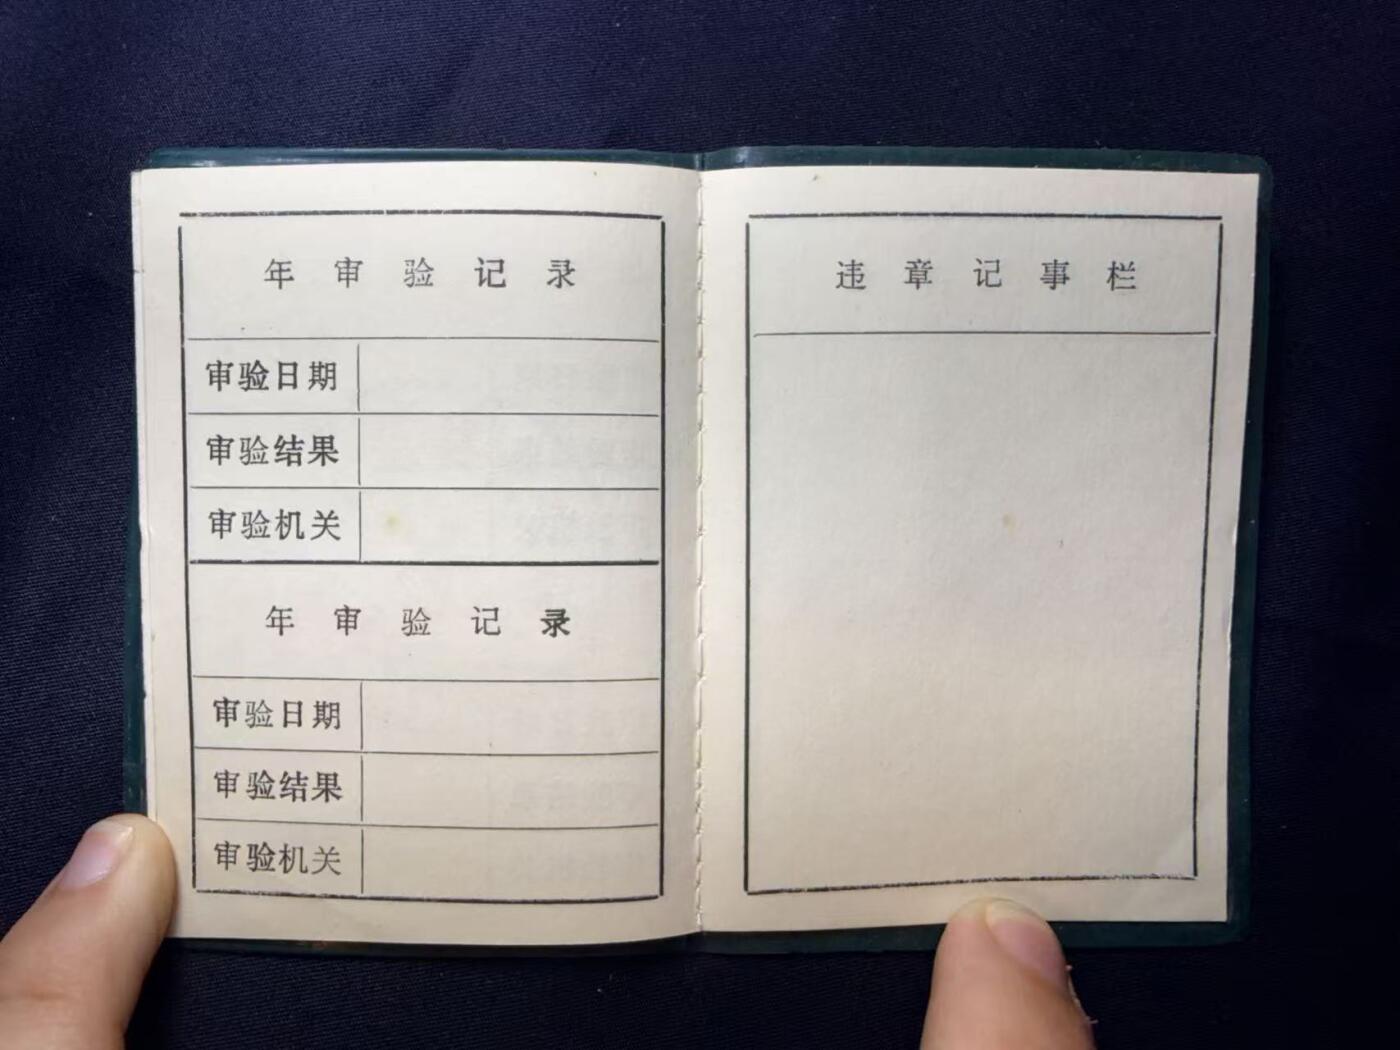 年审验记录
审验日期
审验结果
审验机关
年审验记录
审验日期
审验结果
审验机关
违章记事栏